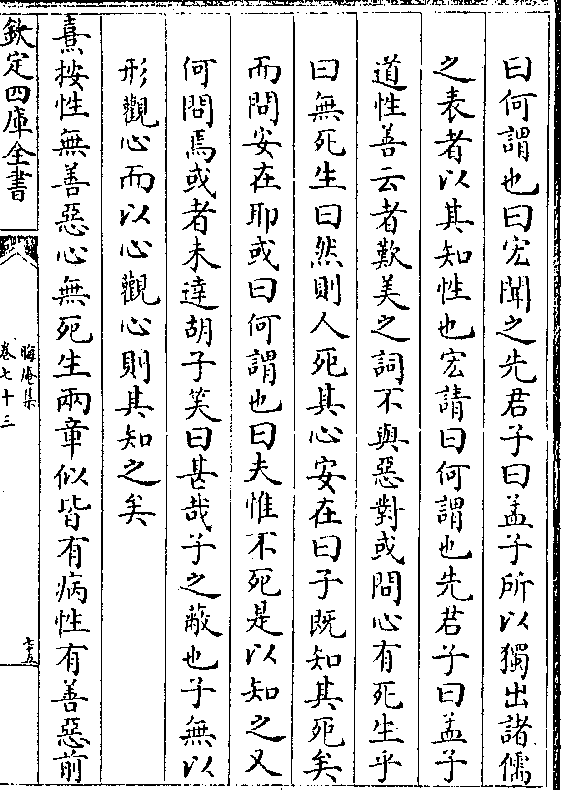 曰何謂也曰宏聞之先君子曰孟子所以獨出諸儒
之表者以其知性也宏請曰何謂也先君子曰孟子
道性善云者歎美之詞不與惡對或問心有死生乎
曰無死生曰然則人死其心安在曰子既知其死矣
而問安在耶或曰何謂也曰夫惟不死是以知之又
何問焉或者未達胡子笑曰甚哉子之蔽也子無以
形觀心而以心觀心則其知之矣
熹按性無善惡心無死生兩章似皆有病性有善惡前
欽定四庫全書
晦庵集
卷七十三